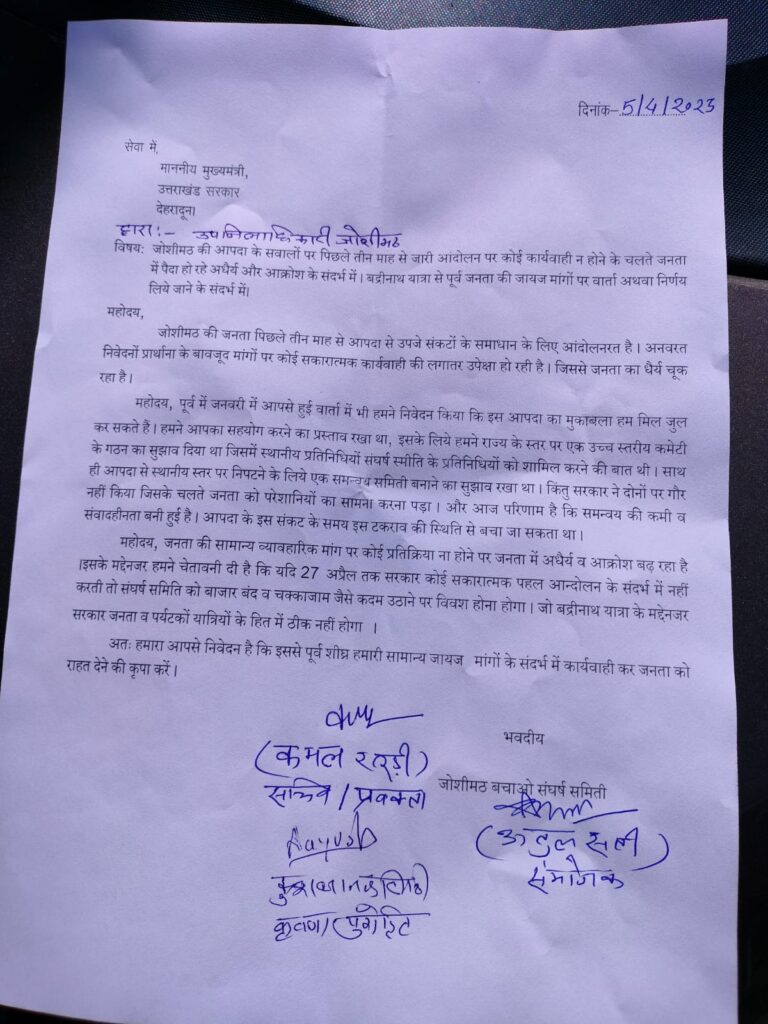 दिनांक– 5/4/2023
सेवा में,
माननीय मुख्यमंत्री,
उत्तराखंड सरकार
देहरादून।
द्वारा:- उपजिलाधिकारी जोशीमठ
विषय: जोशीमठ की आपदा के सवालों पर पिछले तीन माह से जारी आंदोलन पर कोई कार्यवाही न होने के चलते जनता
में पैदा हो रहे अधैर्य और आक्रोश के संदर्भ में। बद्रीनाथ यात्रा से पूर्व जनता की जायज मांगों पर वार्ता अथवा निर्णय
लिये जाने के संदर्भ में।
महोदय,
जोशीमठ की जनता पिछले तीन माह से आपदा से उपजे संकटों के समाधान के लिए आंदोलनरत है। अनवरत
निवेदनों प्रार्थाना के बावजूद मांगों पर कोई सकारात्मक कार्यवाही की लगातर उपेक्षा हो रही है। जिससे जनता का धैर्य चूक
रहा है।
महोदय, पूर्व में जनवरी में आपसे हुई वार्ता में भी हमने निवेदन किया कि इस आपदा का मुकाबला हम मिल जुल
कर सकते हैं। हमने आपका सहयोग करने का प्रस्ताव रखा था, इसके लिये हमने राज्य के स्तर पर एक उच्च स्तरीय कमेटी
के गठन का सुझाव दिया था जिसमें स्थानीय प्रतिनिधियों संघर्ष स्मीति के प्रतिनिधियों को शामिल करने की बात थी। साथ
ही आपदा से स्थानीय स्तर पर निपटने के लिये एक समन्वय समिति बनाने का सुझाव रखा था। किंतु सरकार ने दोनों पर गौर
नहीं किया जिसके चलते जनता को परेशानियों का सामना करना पड़ा। और आज परिणाम है कि समन्वय की कमी व
संवादहीनता बनी हुई है। आपदा के इस संकट के समय इस टकराव की स्थिति से बचा जा सकता था।
महोदय, जनता की सामान्य व्यावहारिक मांग पर कोई प्रतिक्रिया ना होने पर जनता में अधैर्य व आक्रोश बढ़ रहा है
।इसके मद्देनजर हमने चेतावनी दी है कि यदि 27 अप्रैल तक सरकार कोई सकारात्मक पहल आन्दोलन के संदर्भ में नहीं
करती तो संघर्ष समिति को बाजार बंद व चक्काजाम जैसे कदम उठाने पर विवश होना होगा। जो बद्रीनाथ यात्रा के मद्देनजर
सरकार जनता व पर्यटकों यात्रियों के हित में ठीक नहीं होगा ।
अतः हमारा आपसे निवेदन है कि इससे पूर्व शीघ्र हमारी सामान्य जायज मांगों के संदर्भ में कार्यवाही कर जनता को
राहत देने की कृपा करें।
भवदीय
(कमल रतूड़ी)
सचिव / प्रवक्ता
जोशीमठ बचाओ संघर्ष समिती
(अतुल सती)
संयोजक
Aayush
पुरोहित